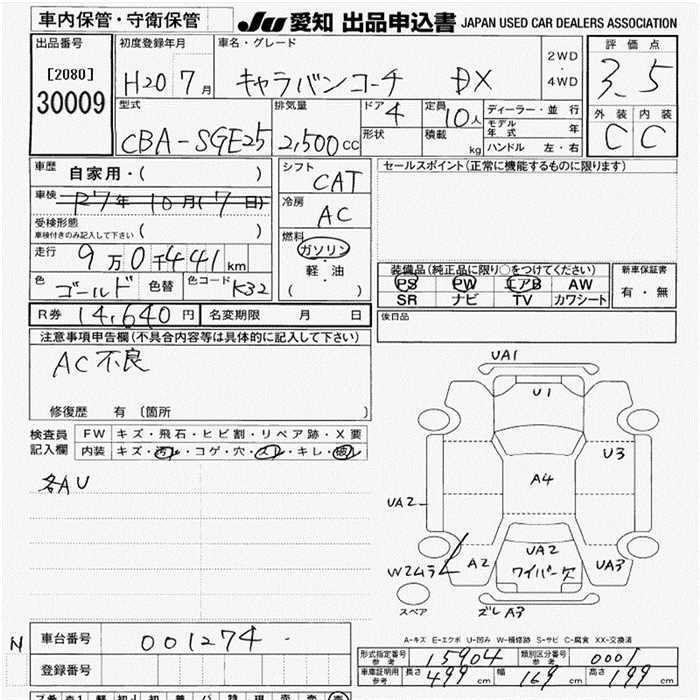 車内保管・守衛保管
JU 愛知 出品申込書 JAPAN USED CAR DEALERS ASSOCIATION
出品番号
[2080]
30009
初度登録年月
H20 7月
車名・グレード
キャラバンコーチ DX
2WD
・
4WD
評価点
3.5
外装 内装
C C
型式
CBA-SGE25
排気量
2,500cc
ドア 4
形状
定員 10人
積載 kg
ディーラー・並行
モデル年式 年
ハンドル 左・右
車歴 自家用・( )
車検 R7年10月(7日)
受検形態
車検付きのみ記入して下さい ( )
走行 9万0千441km
色 ゴールド 色替 色コード K32
シフト
CAT
冷房
AC
燃料
ガソリン
・
軽・油
( )
セールスポイント(正常に機能するものに限ります)
装備品(純正品に限り○をつけてください)
PS PW エアB AW
SR ナビ TV カワシート
新車保証書
有・無
後日品
R券 14,640円 名変期限 月 日
注意事項申告欄(不具合内容等は具体的に記入して下さい)
AC不良
修復歴 有 〔箇所 〕
検査員
記入欄
FW キズ・飛石・ヒビ割・リペア跡・X要
内装 キズ・汚れ・コゲ・穴・スレ・キレ・破れ
各AU
UA1
U1
U3
A4
UA2
A2
UA2
ワイパー欠
UA3
W2ムラ
スペア
ズレA3
A-キズ E-エクボ U-凹み W-補修跡 S-サビ C-腐食 XX-交換済
N
車台番号 001274
登録番号
形式指定番号 参考 15904
類別区分番号 参考 0001
車庫証明用 参考 長さ 499cm 幅 169cm 高さ 199cm